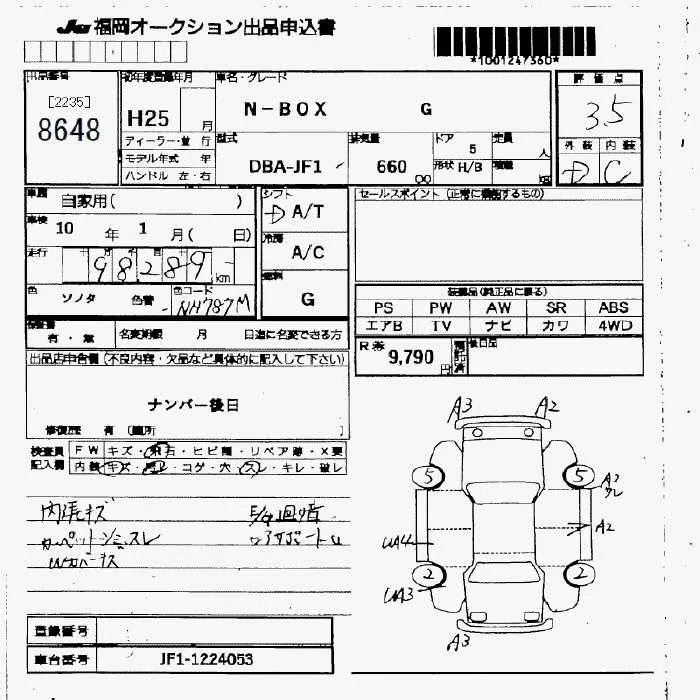 JU 福岡オークション出品申込書
*1001247360*
出品番号 初年度登録年月 車名・グレード 評価点
[2235]
8648
H25 月
N-BOX G
3.5
ディーラー・並行
モデル年式 年
ハンドル 左・右
型式 排気量 ドア 定員
DBA-JF1 660 CC 5 人
形状 H/B 積載 kg
外装 内装
D C
車歴 自家用( )
シフト A/T
セールスポイント (正常に機能するもの)
車検 10 年 1 月( 日)
冷房 A/C
走行 98289 km
色 ソノタ 色替 色コード NH787M
燃料 G
装備品(純正品に限る)
PS PW AW SR ABS
エアB TV ナビ カワ 4WD
保証書 有・無 名変期限 月 日迄に名変できる方
R券 9,790 円 預託済 後日品
出品店申告欄 (不良内容・欠品など具体的に記入して下さい)
ナンバー後日
修復歴 有 (箇所
検査員記入欄
FW キズ・飛石・ヒビ・リペア跡・X要
内装 キズ・汚レ・コゲ・穴・スレ・キレ・破レ
内張キズ
カーペットシミスレ
A3 A2
5 5
A3
A2
UA4
2 2
UA3
A3
登録番号
車台番号 JF1-1224053